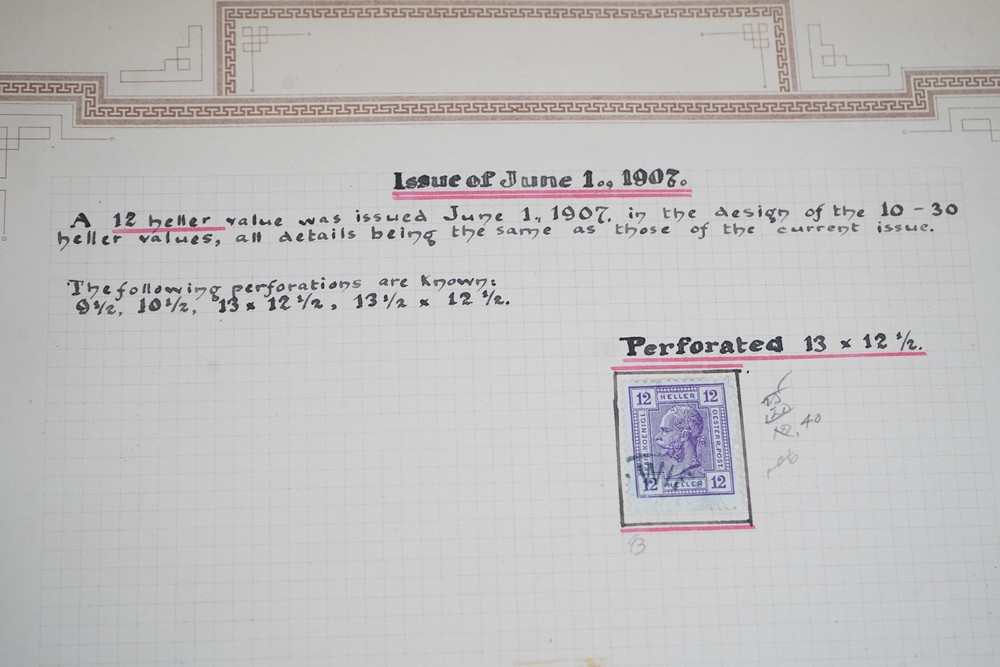 Issue of June 1., 1907.
A 12 heller value was issued June 1., 1907. in the design of the 10 - 30
heller values, all details being the same as those of the current issue.
The following perforations are known:
9 1/2, 10 1/2, 13 x 12 1/2, 13 1/2 x 12 1/2.
Perforated 13 x 12 1/2.
12 HELLER 12
KOENIGL.
OESTERR. POST.
12 HELLER 12
.40
93